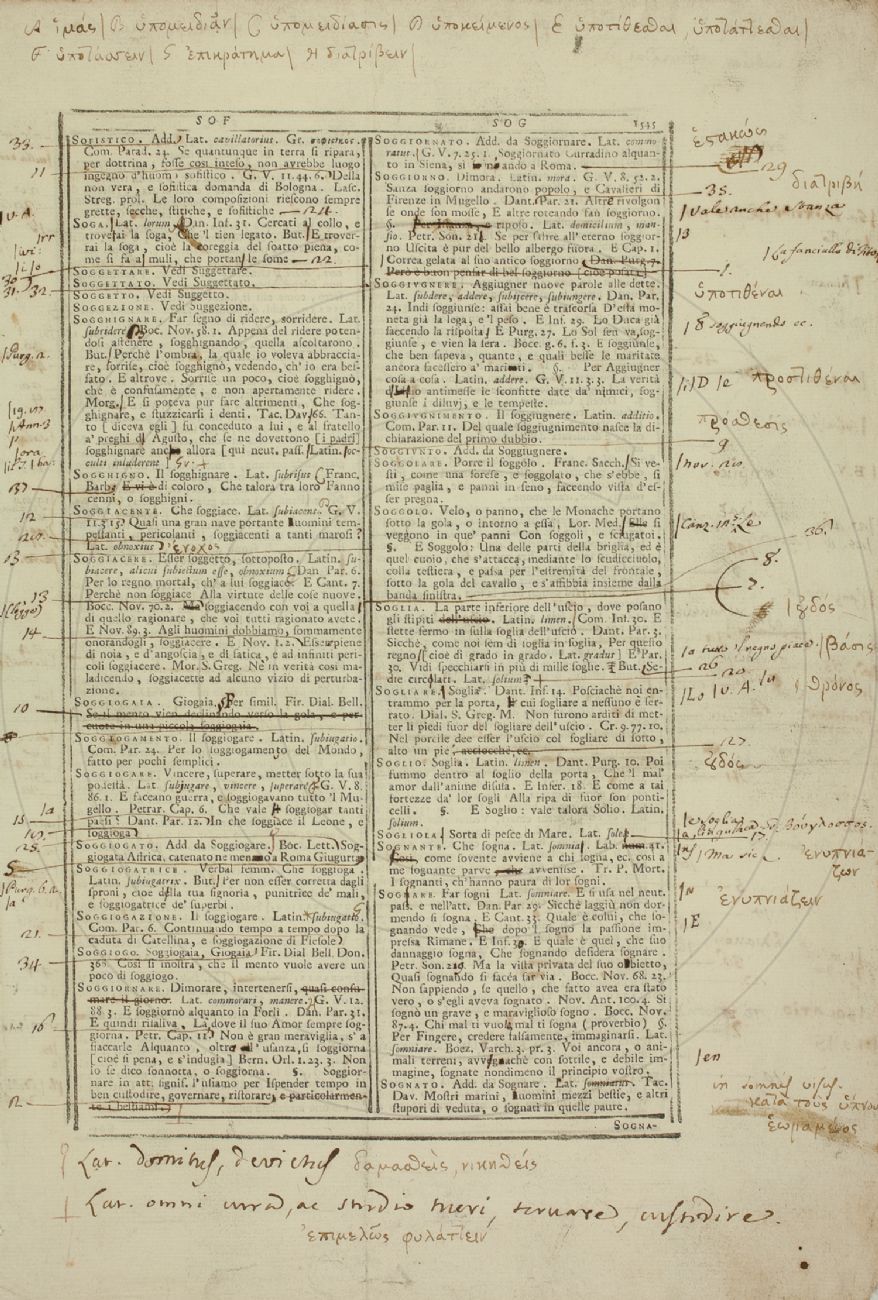 A ἱμὰς | B ὑπομειδιᾶν | C ὑπομειδίασις | D ὑποκείμενος | E ὑποτίθεσθαι, ὑποτάττεσθαι |
F ὑποτάσσειν | G ἐπικράτημα | H διατρίβειν |
SOF
SOFISTICO. Add. Lat. cavillatorius. Gr.
Com. Parad. 24. Se quantunque in terra si ripara,
per dottrina, fosse così inteso, non avrebbe luogo
ingegno d'huom sofistico. G. V. 11. 44. 6. Della
non vera, e sofistica domanda di Bologna. Lasc.
Streg. prol. Le loro composizioni riescono sempre
grette, secche, stitiche, e sofistiche
SOGA. Lat. lorum. Dan. Inf. 31. Cercati al collo, e
troverai la soga, Che 'l tien legato. But. E trover-
rai la soga, cioè la coreggia del soatto piena, co-
me si fa a' muli, che portan le some
SOGGETTARE. Vedi Suggettare.
SOGGETTATO. Vedi Suggettato.
SOGGETTO. Vedi Suggetto.
SOGGEZIONE. Vedi Suggezione.
SOGGHIGNARE. Far segno di ridere, sorridere. Lat.
subridere. Boc. Nov. 58. 1. Appena del ridere poten-
dosi astenere, sogghignando, quella ascoltarono.
But. Perchè l'ombra, la quale io voleva abbraccia-
re, sorrise, cioè sogghignò, vedendo, ch' io era bef-
fato. E altrove. Sorrise un poco, cioè sogghignò,
che è confusamente, e non apertamente ridere.
Morg. E si poteva pur fare altrimenti, Che sog-
ghignare, e stuzzicarsi i denti. Tac. Dav. 66. Tan-
to [diceva egli] fu conceduto a lui, e al fratello
a' preghi di Agusto, che se ne dovettono [i padri]
sogghignare anche allora [qui neut. pass. Latin. oc-
culti inluderent]
SOGGHIGNO. Il sogghignare. Lat. subrisus. Franc.
Barb. E vi è di coloro, Che talora tra loro Fanno
cenni, o sogghigni.
SOGGIACENTE. Che soggiace. Lat. subiacens. G. V.
11. 3. 15. Quasi una gran nave portante huomini tem-
pestanti, pericolanti, e soggiacenti a tanti marosi?
Lat. obnoxius. ἔνοχος
SOGGIACERE. Esser soggetto, sottoposto. Latin. su-
biacere, alicui subiectum esse, obnoxium. Dan. Par. 6.
Per lo regno mortal, ch' a lui soggiace. E Cant. 7.
Perchè non soggiace Alla virtute delle cose nuove.
Bocc. Nov. 70. 2. Ma soggiacendo con voi a quella
di quello ragionare, che voi tutti ragionato avete.
E Nov. 89. 3. Agli huomini dobbiamo, sommamente
onorandogli, soggiacere. E Nov. 1. 2. Esser piene
di noia, e d'angoscia, e di fatica, e ad infiniti peri-
coli soggiacere. Mor. S. Greg. Nè in verità così ma-
ladicendo, soggiacette ad alcuno vizio di perturba-
zione.
SOGGIOGAIA. Giogaia. Per simil. Fir. Dial. Bell.
Se il mento vien chinando verso la gola, e per-
cuote in una piccola soggiogaia.
SOGGIOGAMENTO. Il soggiogare. Latin. subiugatio.
Com. Par. 24. Per lo soggiogamento del Mondo,
fatto per pochi semplici.
SOGGIOGARE. Vincere, superare, metter sotto la sua
podestà. Lat. subjugare, vincere, superare. G. V. 8.
86. 1. E faceano guerra, e soggiogavano tutto 'l Mu-
gello. Petrar. Cap. 6. Che vale a soggiogar tanti
paesi? Dant. Par. 12. In che soggiace il Leone, e
soggioga.
SOGGIOGATO. Add da Soggiogare. Boc. Lett. Sog-
giogata Affrica, catenato ne menano a Roma Giugurta
SOGGIOGATRICE. Verbal femm. Che soggioga.
Latin. subiugatrix. But. Per non esser corretta dagli
sproni, cioè della tua signoria, punitrice de' mali,
e soggiogatrice de' superbi.
SOGGIOGAZIONE. Il soggiogare. Latin. subiugatio.
Com. Par. 6. Continuando tempo a tempo dopo la
caduta di Catellina, e soggiogazione di Fiesole.
SOGGIOGO. Soggiogaia, Giogaia. Fir. Dial Bell. Don.
368. Così si mostra, che il mento vuole avere un
poco di soggiogo.
SOGGIORNARE. Dimorare, intertenersi, quasi consu-
mare il giorno. Lat. commorari, manere. G. V. 12.
88. 3. E soggiornò alquanto in Forlì. Dan. Par. 31.
E quindi risaliva, Là dove il suo Amor sempre sog-
giorna. Petr. Cap. 11. Non è gran meraviglia, s'a
fiaccarle Alquanto, oltre all'usanza, si soggiorna
[cioè si pena, e s'indugia] Bern. Orl. 1. 23. 3. Non
lo se dico sonnotta, o soggiorna. §. Soggior-
nare in att. signif. l'usiamo per Ispender tempo in
ben custodire, governare, ristorare, e particolarmen-
te i bestiami.
SOG 1545
SOGGIORNATO. Add. da Soggiornare. Lat. commo-
ratus. G. V. 7. 25. 1. Soggiornato Curradino alquan-
to in Siena, si tornando a Roma.
SOGGIORNO. Dimora. Latin. mora. G. V. 8. 52. 2.
Sanza soggiorno andarono popolo, e Cavalieri di
Firenze in Mugello. Dant. Par. 21. Altre rivolgon
se onde son mosse, E altre roteando fan soggiorno.
§. e riposo. Latin. domicilium, man-
sio. Petr. Son. 21. Se per salire all'eterno soggior-
no Uscita è pur del bello albergo fuora. E Cap. 1.
Correa gelata al suo antico soggiorno. Dan. Purg. 7.
Però è buon pensar di bel soggiorno [cioè posata]
SOGGIVGNERE. Aggiugner nuove parole alle dette.
Latin. subdere, addere, subiicere, subiungere. Dan. Par.
24. Indi soggiunse: assai bene è trascorsa D'esta mo-
neta già la lega, e 'l peso. E Inf. 29. Lo Duca già
faccendo la risposta. E Purg. 27. Lo Sol sen va, sog-
giunse, e vien la sera. Bocc. g. 6. f. 3. E soggiunse,
che ben sapeva, quante, e quali beffe le maritate
ancora facessero a' mariti. §. Per Aggiugner
cosa a cosa. Latin. addere. G. V. 11. 3. 3. La verità
antimesse le sconfitte date da' nimici, sog-
giunse i diluvj, e le tempeste.
SOGGIVGNIMENTO. Il soggiugnere. Latin. additio.
Com. Par. 11. Del quale soggiugnimento nasce la di-
chiarazione del primo dubbio.
SOGGIVNTO. Add. da Soggiugnere.
SOGGOLARE. Porre il soggolo. Franc. Sacch. Si ve-
stì, come una forese, e soggolato, che s'ebbe, si
mise paglia, e panni in seno, faccendo vista d'es-
ser pregna.
SOGGOLO. Velo, o panno, che le Monache portano
sotto la gola, o intorno a essa. Lor. Med. Elle si
veggono in que' panni Con soggoli, e sciugatoi.
§. E Soggolo: Una delle parti della briglia, ed è
quel cuoio, che s'attacca, mediante lo scudicciuolo,
colla testiera, e passa per l'estremità del frontale,
sotto la gola del cavallo, e s'affibbia insieme dalla
banda sinistra.
SOGLIA. La parte inferiore dell'uscio, dove posano
gli stipiti dell'uscio. Latin. limen. Com. Inf. 30. E
stette fermo in sulla soglia dell'uscio. Dant. Par. 3.
Sicchè, come noi sem di soglia in soglia, Per questo
regno [cioè di grado in grado. Lat. gradus] E Par.
30. Vidi specchiarsi in più di mille soglie. But. Se-
die circolari. Lat. solium.
SOGLIARE. Soglia. Dant. Inf. 14. Posciachè noi en-
trammo per la porta, Il cui sogliare a nessuno è ser-
rato. Dial. S. Greg. M. Non furono arditi di met-
ter li piedi fuor del sogliare dell'uscio. Cr. 9. 77. 10.
Nel porcile dee esser l'uscio col sogliare di sotto,
alto un piè, acciocchè, ec.
SOGLIO. Soglia. Latin. limen. Dant. Purg. 10. Poi
fummo dentro al soglio della porta, Che 'l mal
amor dall'anime disusa. E Inser. 18. E come a tai
fortezze da' lor sogli Alla ripa di fuor son ponti-
celli. §. E Soglio: vale talora Solio. Latin.
solium.
SOGLIOLA. Sorta di pesce di Mare. Lat. solea.
SOGNANTE. Che sogna. Lat. somnians. Lab.
come sovente avviene a chi sogna, ec. così a
me sognante parve che avvenisse. Tr. P. Mort.
I sognanti, ch'hanno paura di lor sogni.
SOGNARE. Far sogni Lat. somniare. E si usa nel neut.
pass. e nell'att. Dan. Par. 29. Sicchè laggiù non dor-
mendo si sogna. E Cant. 33. Quale è colui, che so-
gnando vede, Che dopo 'l sogno la passione im-
pressa Rimane. E Inf. 30. E quale è quei, che suo
dannaggio sogna, Che sognando desidera sognare.
Petr. Son. 210. Ma la vista privata del suo obbietto,
Quasi sognando si facea far via. Bocc. Nov. 68. 23.
Non sappiendo, se quello, che fatto avea era stato
vero, o s'egli aveva sognato. Nov. Ant. 100. 4. Si
sognò un grave, e maraviglioso sogno. Bocc. Nov.
87. 4. Chi mal ti vuol, mal ti sogna (proverbio) §.
Per Fingere, credere falsamente, immaginarsi. Lat.
somniare. Boez. Varch. 3. pr. 3. Voi ancora, o ani-
mali terreni, avvegnachè con sottile, e debile im-
magine, sognate nondimeno il principio vostro.
SOGNATO. Add. da Sognare. Lat. somniatus. Tac.
Dav. Mostri marini, huomini mezzi bestie, e altri
stupori di veduta, o sognati in quelle paure.
SOGNA-
διατριβή
vale anche stanza
ὑποτιθέναι
soggiugnendo ec.
προστιθέναι
πρόσθεσις
βάσις
θρόνος
βούγλωσσος
ἐνυπνιά-
ζων
ἐνυπνιάζειν
in somnis visus.
κατὰ τοὺς ὕπνους
ἑωραμένος
Lat. domitus, devictus δαμασθεὶς, νικηθείς
Lat. omni cura, ac studio tueri, servare, custodire.
ἐπιμελῶς φυλάττειν